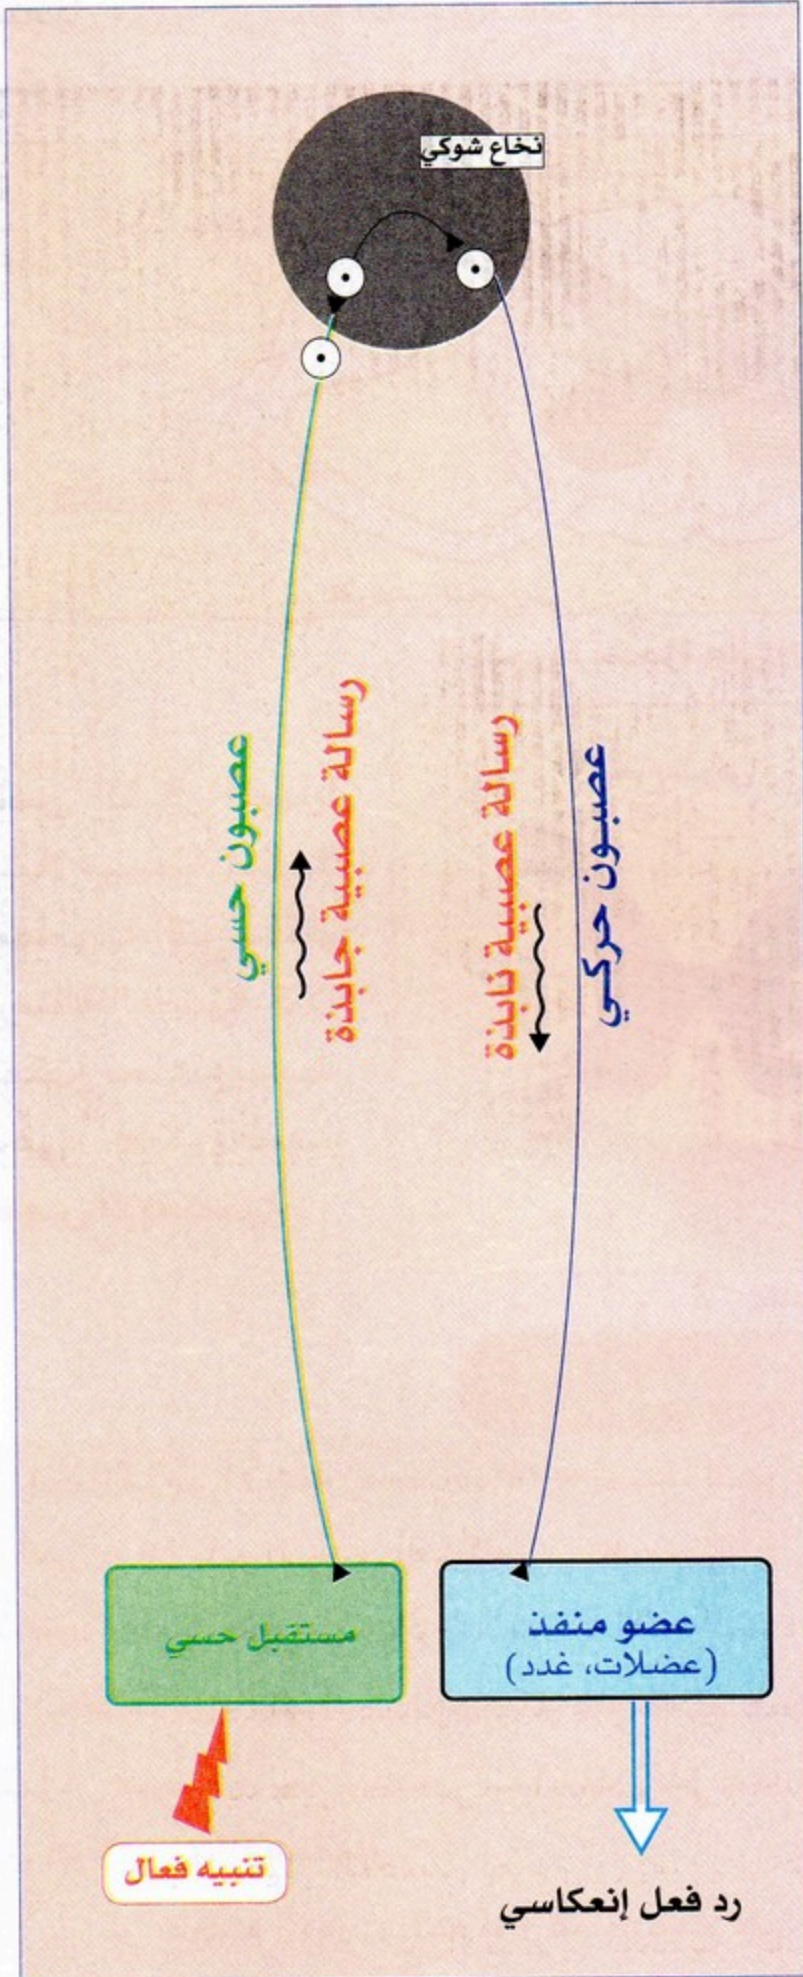 نخاع شوكي
عصبون حسي
رسالة عصبية جابذة
رسالة عصبية نابذة
عصبون حركي
مستقبل حسي
عضو منفذ
(عضلات، غدد)
تنبيه فعال
رد فعل إنعكاسي